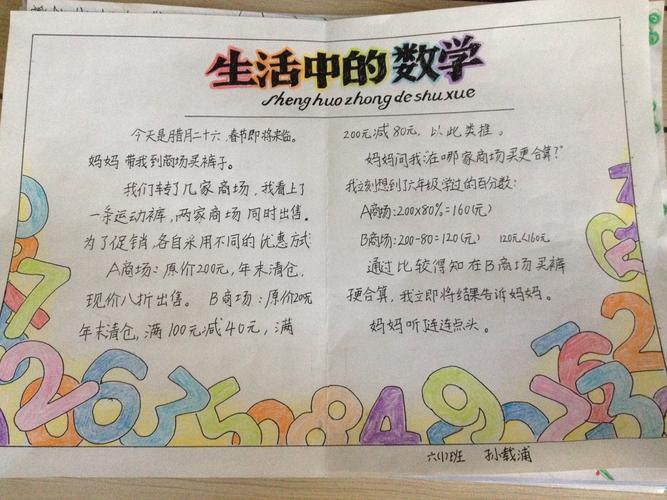 生活中的数学
shenghuozhongdeshuxue
今天是腊月二十六,春节即将来临。
妈妈带我到商场买裤子。
我们转了几家商场,我看上了
一条运动裤,两家商场同时出售。
为了促销,各自采用不同的优惠方式
A商场:原价200元,年末清仓,
现价八折出售。B商场:原价200元
年末清仓,满100元减40元,满
200元减80元,以此类推。
妈妈问我:"在哪家商场买更合算?"
我立刻想到了六年级学过的百分数:
A商场:200×80%=160(元)
B商场:200-80=120(元) 120元<160元
通过比较得知在B商场买裤
更合算,我立即将结果告诉妈妈。
妈妈听了连连点头。
六(1)班 孙载浦